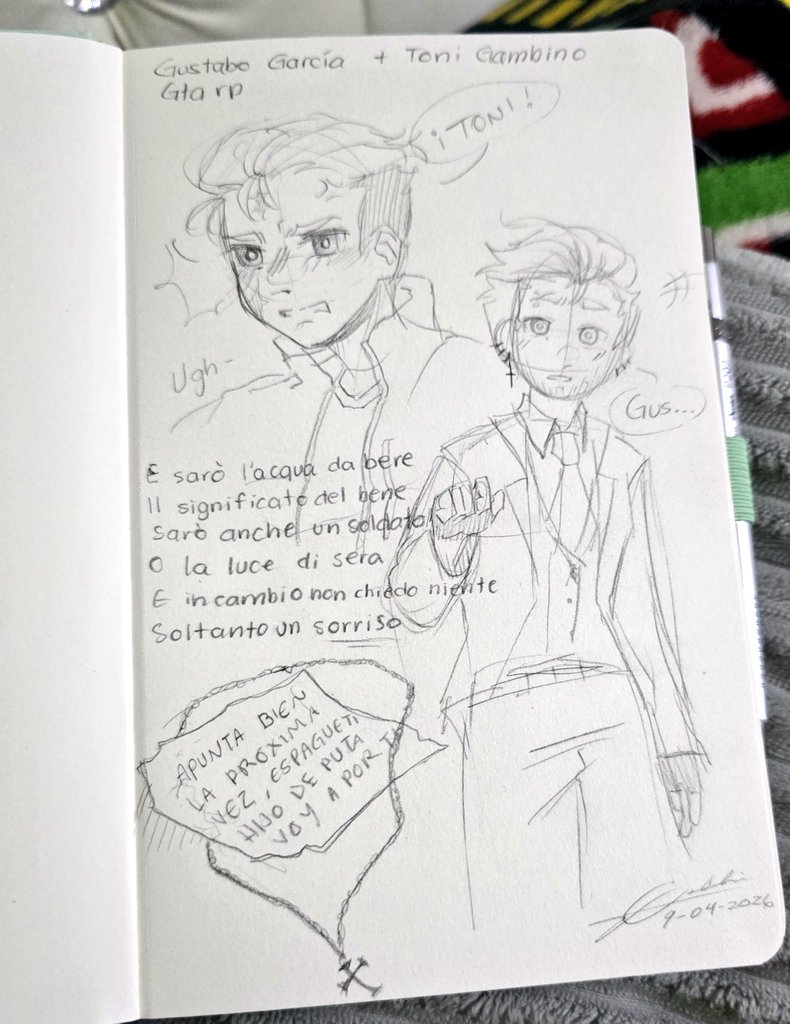 Gustabo García + Toni Gambino
Gta rp
¡TONI!
Ugh-
Gus...
E sarò l'acqua da bere
Il significato del bene
Sarò anche un soldato
O la luce di sera
E in cambio non chiedo niente
Soltanto un sorriso
APUNTA BIEN
LA PRÓXIMA
VEZ, ESPAGUETI
HIJO DE PUTA
VOY A POR TI
9-04-2026